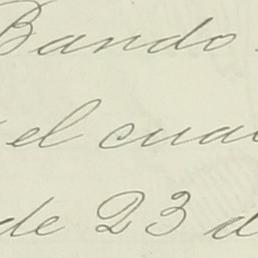 Bando
el cual
de 23 d